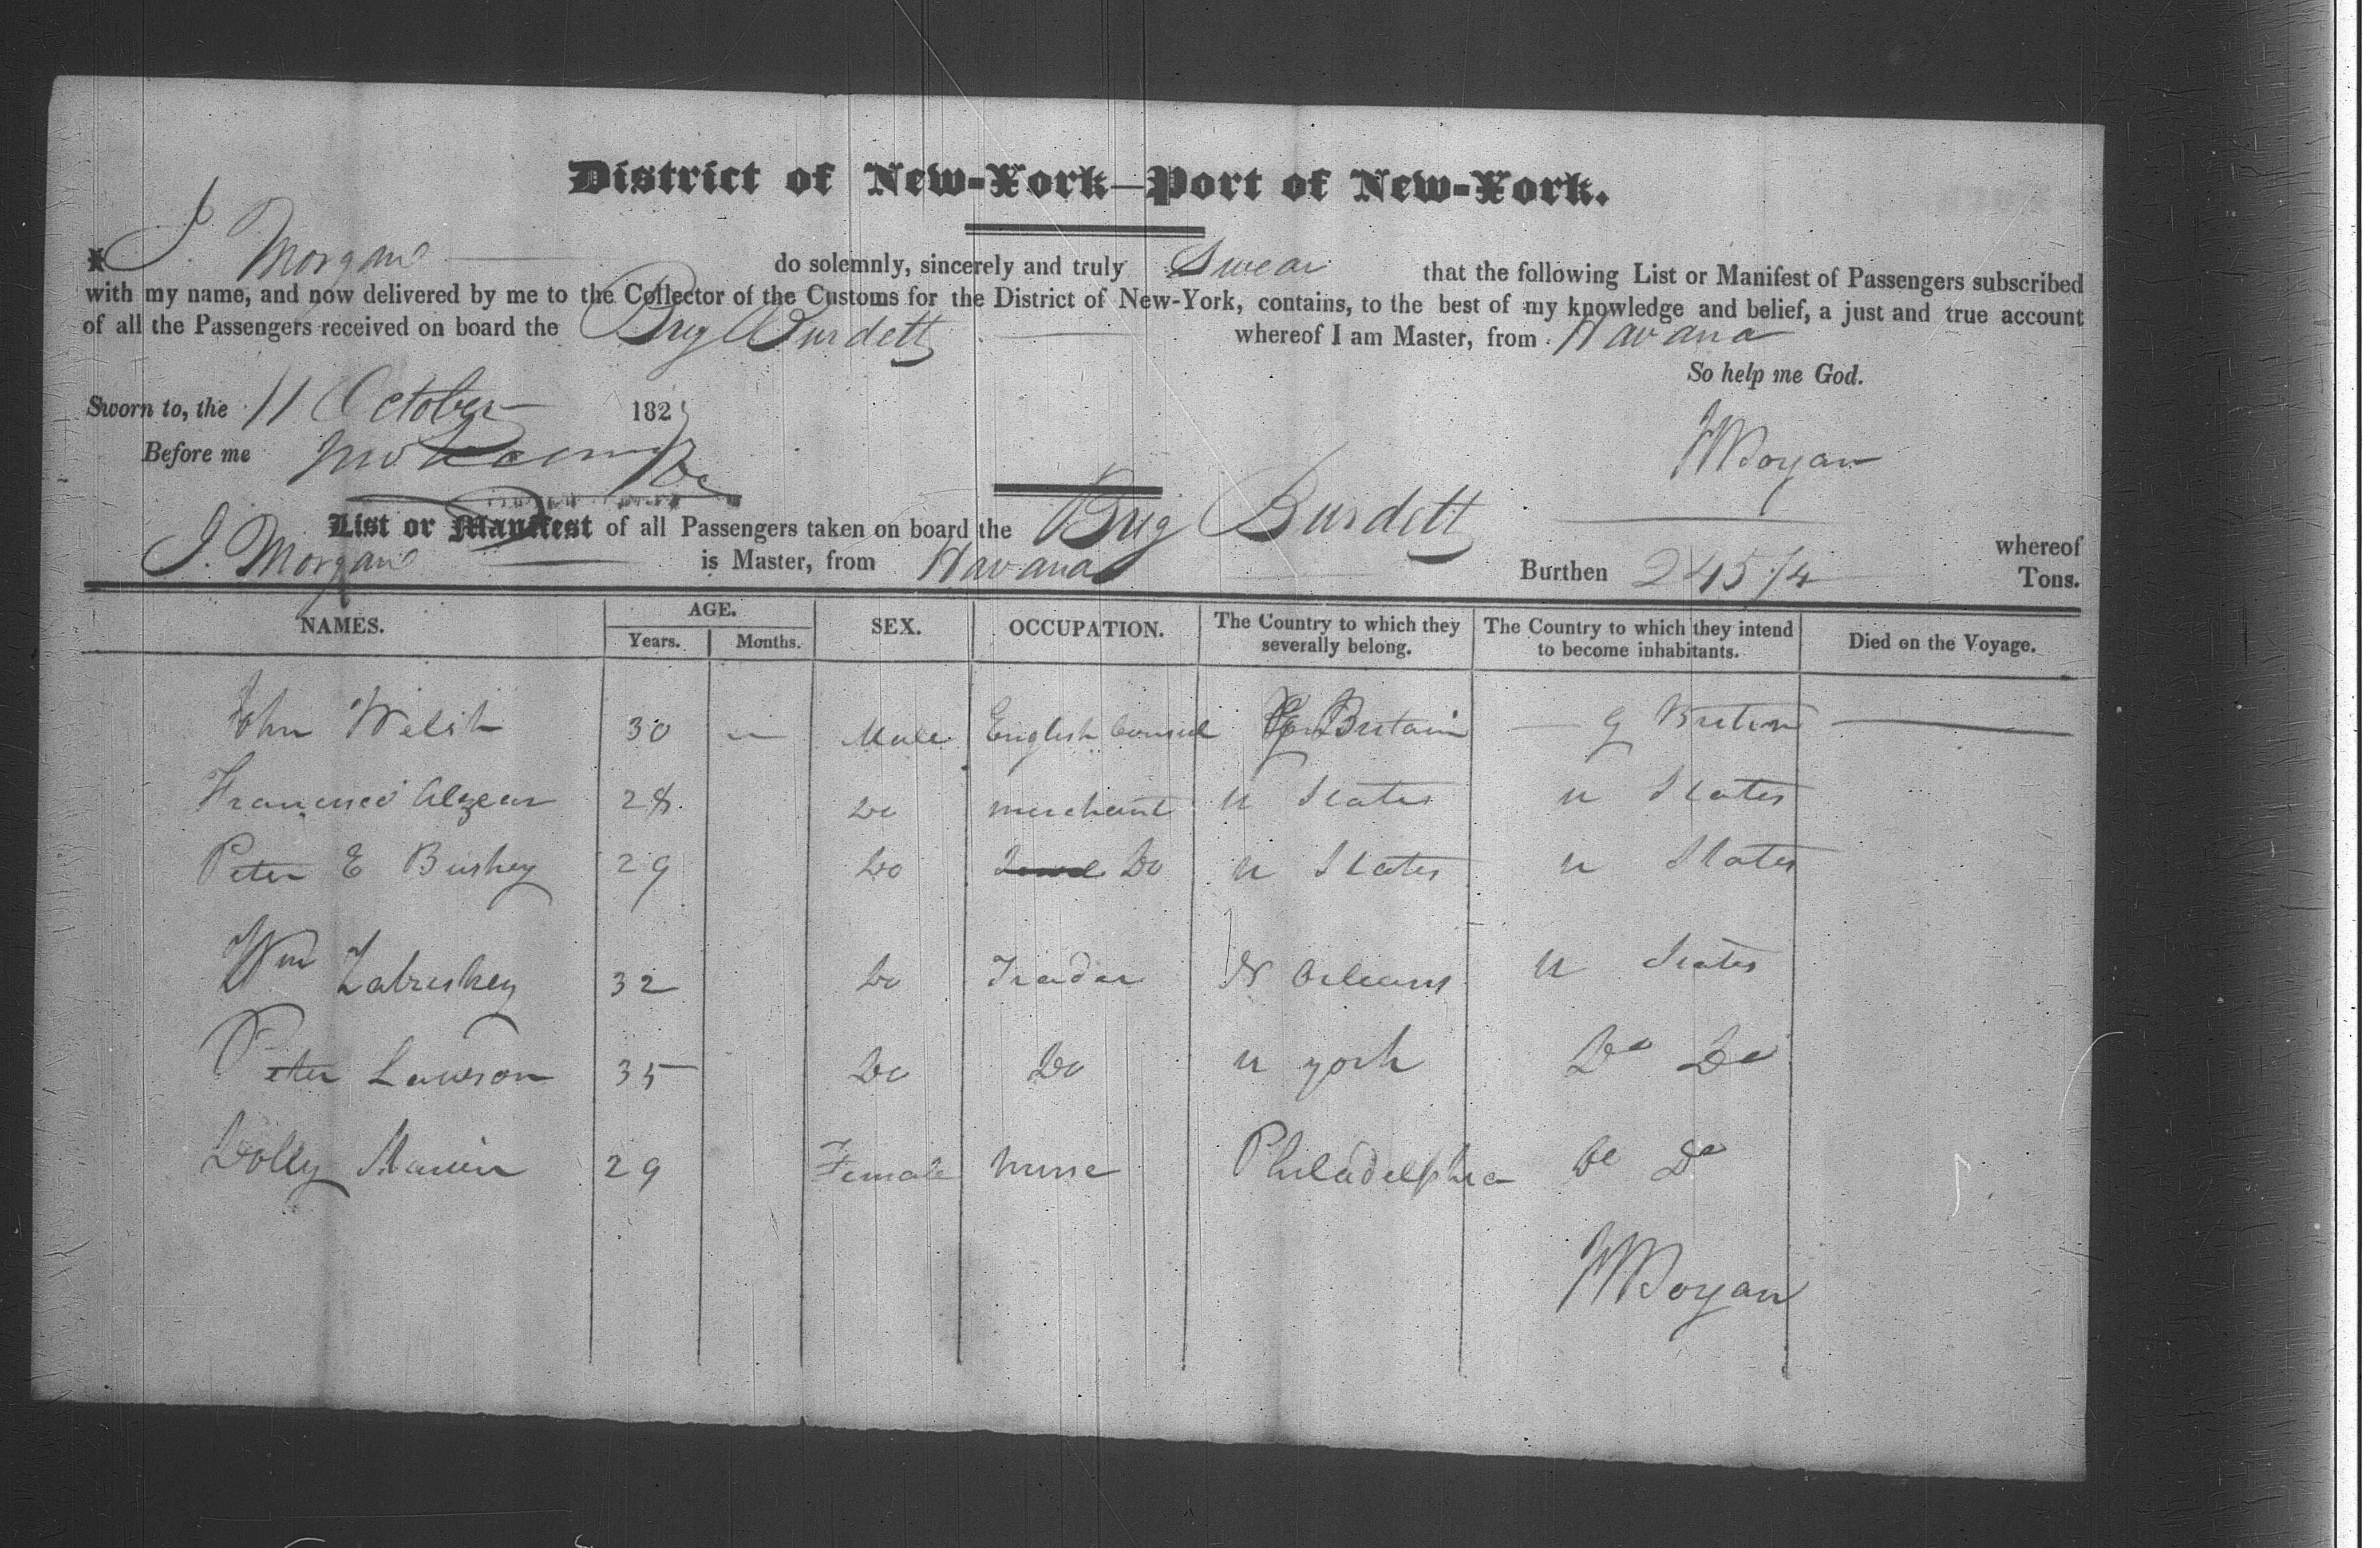 District of New-York—Port of New-York.
I J. Morgan do solemnly, sincerely and truly Swear that the following List or Manifest of Passengers subscribed
with my name, and now delivered by me to the Collector of the Customs for the District of New-York, contains, to the best of my knowledge and belief, a just and true account
of all the Passengers received on board the Brig Burdett whereof I am Master, from Havana
So help me God.
Sworn to, the 11 October 182
JMorgan
Before me
List or Manifest of all Passengers taken on board the Brig Burdett whereof
J. Morgan is Master, from Havana Burthen 245 /4 Tons.
NAMES. AGE. Years. Months. SEX. OCCUPATION. The Country to which they severally belong. The Country to which they intend to become inhabitants. Died on the Voyage.
John Welsh 30 — Male English Consul Britain G Britain
28 Do merchant U States U States
Peter E Bushey 29 Do Do U States U States
Wm Zabriskey 32 Do Trader N Orleans U States
Peter Lawson 35 Do Do N york Do Do
Dolly 29 Female nurse Philadelphia Do Do
JMorgan